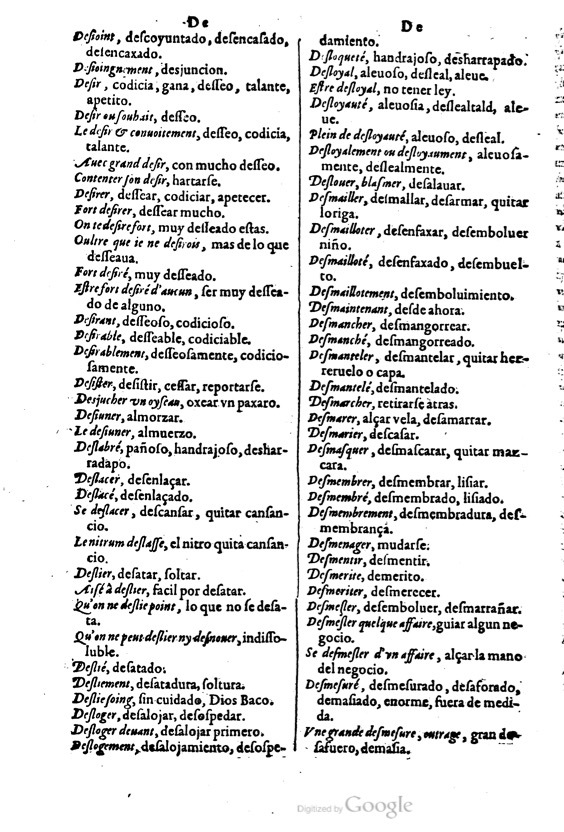 De
Desioint, descoyuntado, desencasado,
desencaxado.
Desioingnement, desjuncion.
Desir, codicia, gana, desseo, talante,
apetito.
Desir ou souhait, desseo.
Le desir & conuoitement, desseo, codicia,
talante.
Auec grand desir, con mucho desseo.
Contenter son desir, hartarse.
Desirer, dessear, codiciar, apetecer.
Fort desirer, dessear mucho.
On te desire fort, muy desseado estas.
Oultre que ie ne desirois, mas de lo que
desseaua.
Fort desiré, muy desseado.
Estre fort desiré d'aucun, ser muy dessea-
do de alguno.
Desirant, desseoso, codicioso.
Desirable, desseable, codiciable.
Desirablement, desseosamente, codicio-
samente.
Desister, desistir, cessar, reportarse.
Desjucher vn oyseau, oxear vn paxaro.
Desiuner, almorzar.
Le desiuner, almuerzo.
Deslabré, pañoso, handrajoso, deshar-
radapo.
Deslacer, desenlaçar.
Deslacé, desenlaçado.
Se deslacer, descansar, quitar cansan-
cio.
Le nitrum deslasse, el nitro quita cansan-
cio.
Deslier, desatar, soltar.
Aisé à deslier, facil por desatar.
Qu'on ne deslie point, lo que no se desa-
ta.
Qu'on ne peut deslier ny desnouer, indisso-
luble.
Deslié, desatado.
Desliement, desatadura, soltura.
Desliesoing, sin cuidado, Dios Baco.
Desloger, desalojar, desospedar.
Desloger deuant, desalojar primero.
Deslogement, desalojamiento, desospe-
De
damiento.
Desloqueté, handrajoso, desharrapado.
Desloyal, aleuoso, desleal, aleue.
Estre desloyal, no tener ley.
Desloyauté, aleuosia, deslealtald, ale-
ue.
Plein de desloyauté, aleuoso, desleal.
Desloyalement ou desloyaument, aleuosa-
mente, deslealmente.
Deslouer, blasmer, desalauar.
Desmailler, desmallar, desarmar, quitar
loriga.
Desmailloter, desenfaxar, desemboluer
niño.
Desmailloté, desenfaxado, desembuel-
to.
Desmaillotement, desemboluimiento.
Desmaintenant, desde ahora.
Desmancher, desmangorrear.
Desmanché, desmangorreado.
Desmanteler, desmantelar, quitar her-
reruelo o capa.
Desmantelé, desmantelado.
Desmarcher, retirarse atras.
Desmarer, alçar vela, desamarrar.
Desmarier, descasar.
Desmasquer, desmascarar, quitar mas-
cara.
Desmembrer, desmembrar, lisiar.
Desmembré, desmembrado, lisiado.
Desmembrement, desmembradura, des-
membrança.
Desmenager, mudarse.
Desmentir, desmentir.
Desmerite, demerito.
Desmeriter, desmerecer.
Desmesler, desemboluer, desmarrañar.
Desmesler quelque affaire, guiar algun ne-
gocio.
Se desmesler d'vn affaire, alçar la mano
del negocio.
Desmesuré, desmesurado, desaforado,
demasiado, enorme, fuera de medi-
da.
Vne grande desmesure, outrage, gran de-
safuero, demasia.
Digitized by Google